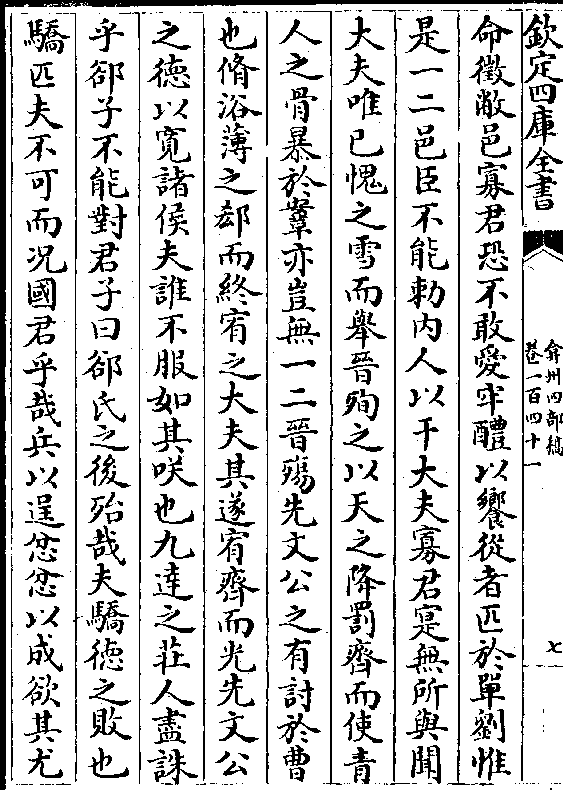 欽定四庫全書
弇州四部稿
卷一百四十一
七
命徵敝邑寡君恐不敢愛牢醴以饗從者匹於單劉惟
是一二邑臣不能勅内人以干大夫寡君寔無所與聞
大夫唯已愧之雪而舉晉殉之以天之降罰齊而使青
人之骨暴於鞌亦豈無一二晉殤先文公之有討於曹
也脩浴薄之郄而終宥之大夫其遂宥齊而光先文公
之德以寛諸侯夫誰不服如其咲也九逵之莊人盡誅
乎郤子不能對君子曰郤氏之後殆哉夫驕德之敗也
驕匹夫不可而况國君乎哉兵以逞忿忿以成欲其尤